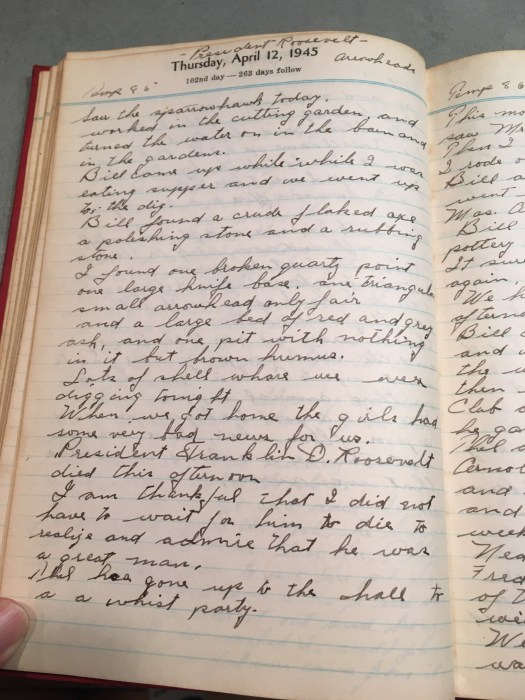 - President Roosevelt -
Thursday, April 12, 1945
Arrowheads
102nd day — 263 days follow
Saw the sparrowhawk today.
worked in the cutting garden and
turned the water on in the barn and
in the gardens.
Bill came up while while I was
eating supper and we went up
to the dig.
Bill found a crude flaked axe
a polishing stone and a rubbing
stone.
I found one broken quartz point
one large knife base, one triangular
small arrowhead only fair
and a large bed of red and grey
ash, and one pit with nothing
in it but brown humus.
Lots of shell where we were
digging tonight
When we got home the girls had
some very bad news for us.
President Franklin D. Roosevelt
died this afternoon
I am thankful that I did not
have to wait for him to die to
realize and admire that he was
a great man.
has gone up to the hall to
a a whist party.
This mo
saw
Then I
I rode o
Bill a
went
Mas. C
Bill
pottery
It sure
again,
We h
afterno
Bill
and
the
then
Club
he ga
and
and
week
Fred
of
We
wa